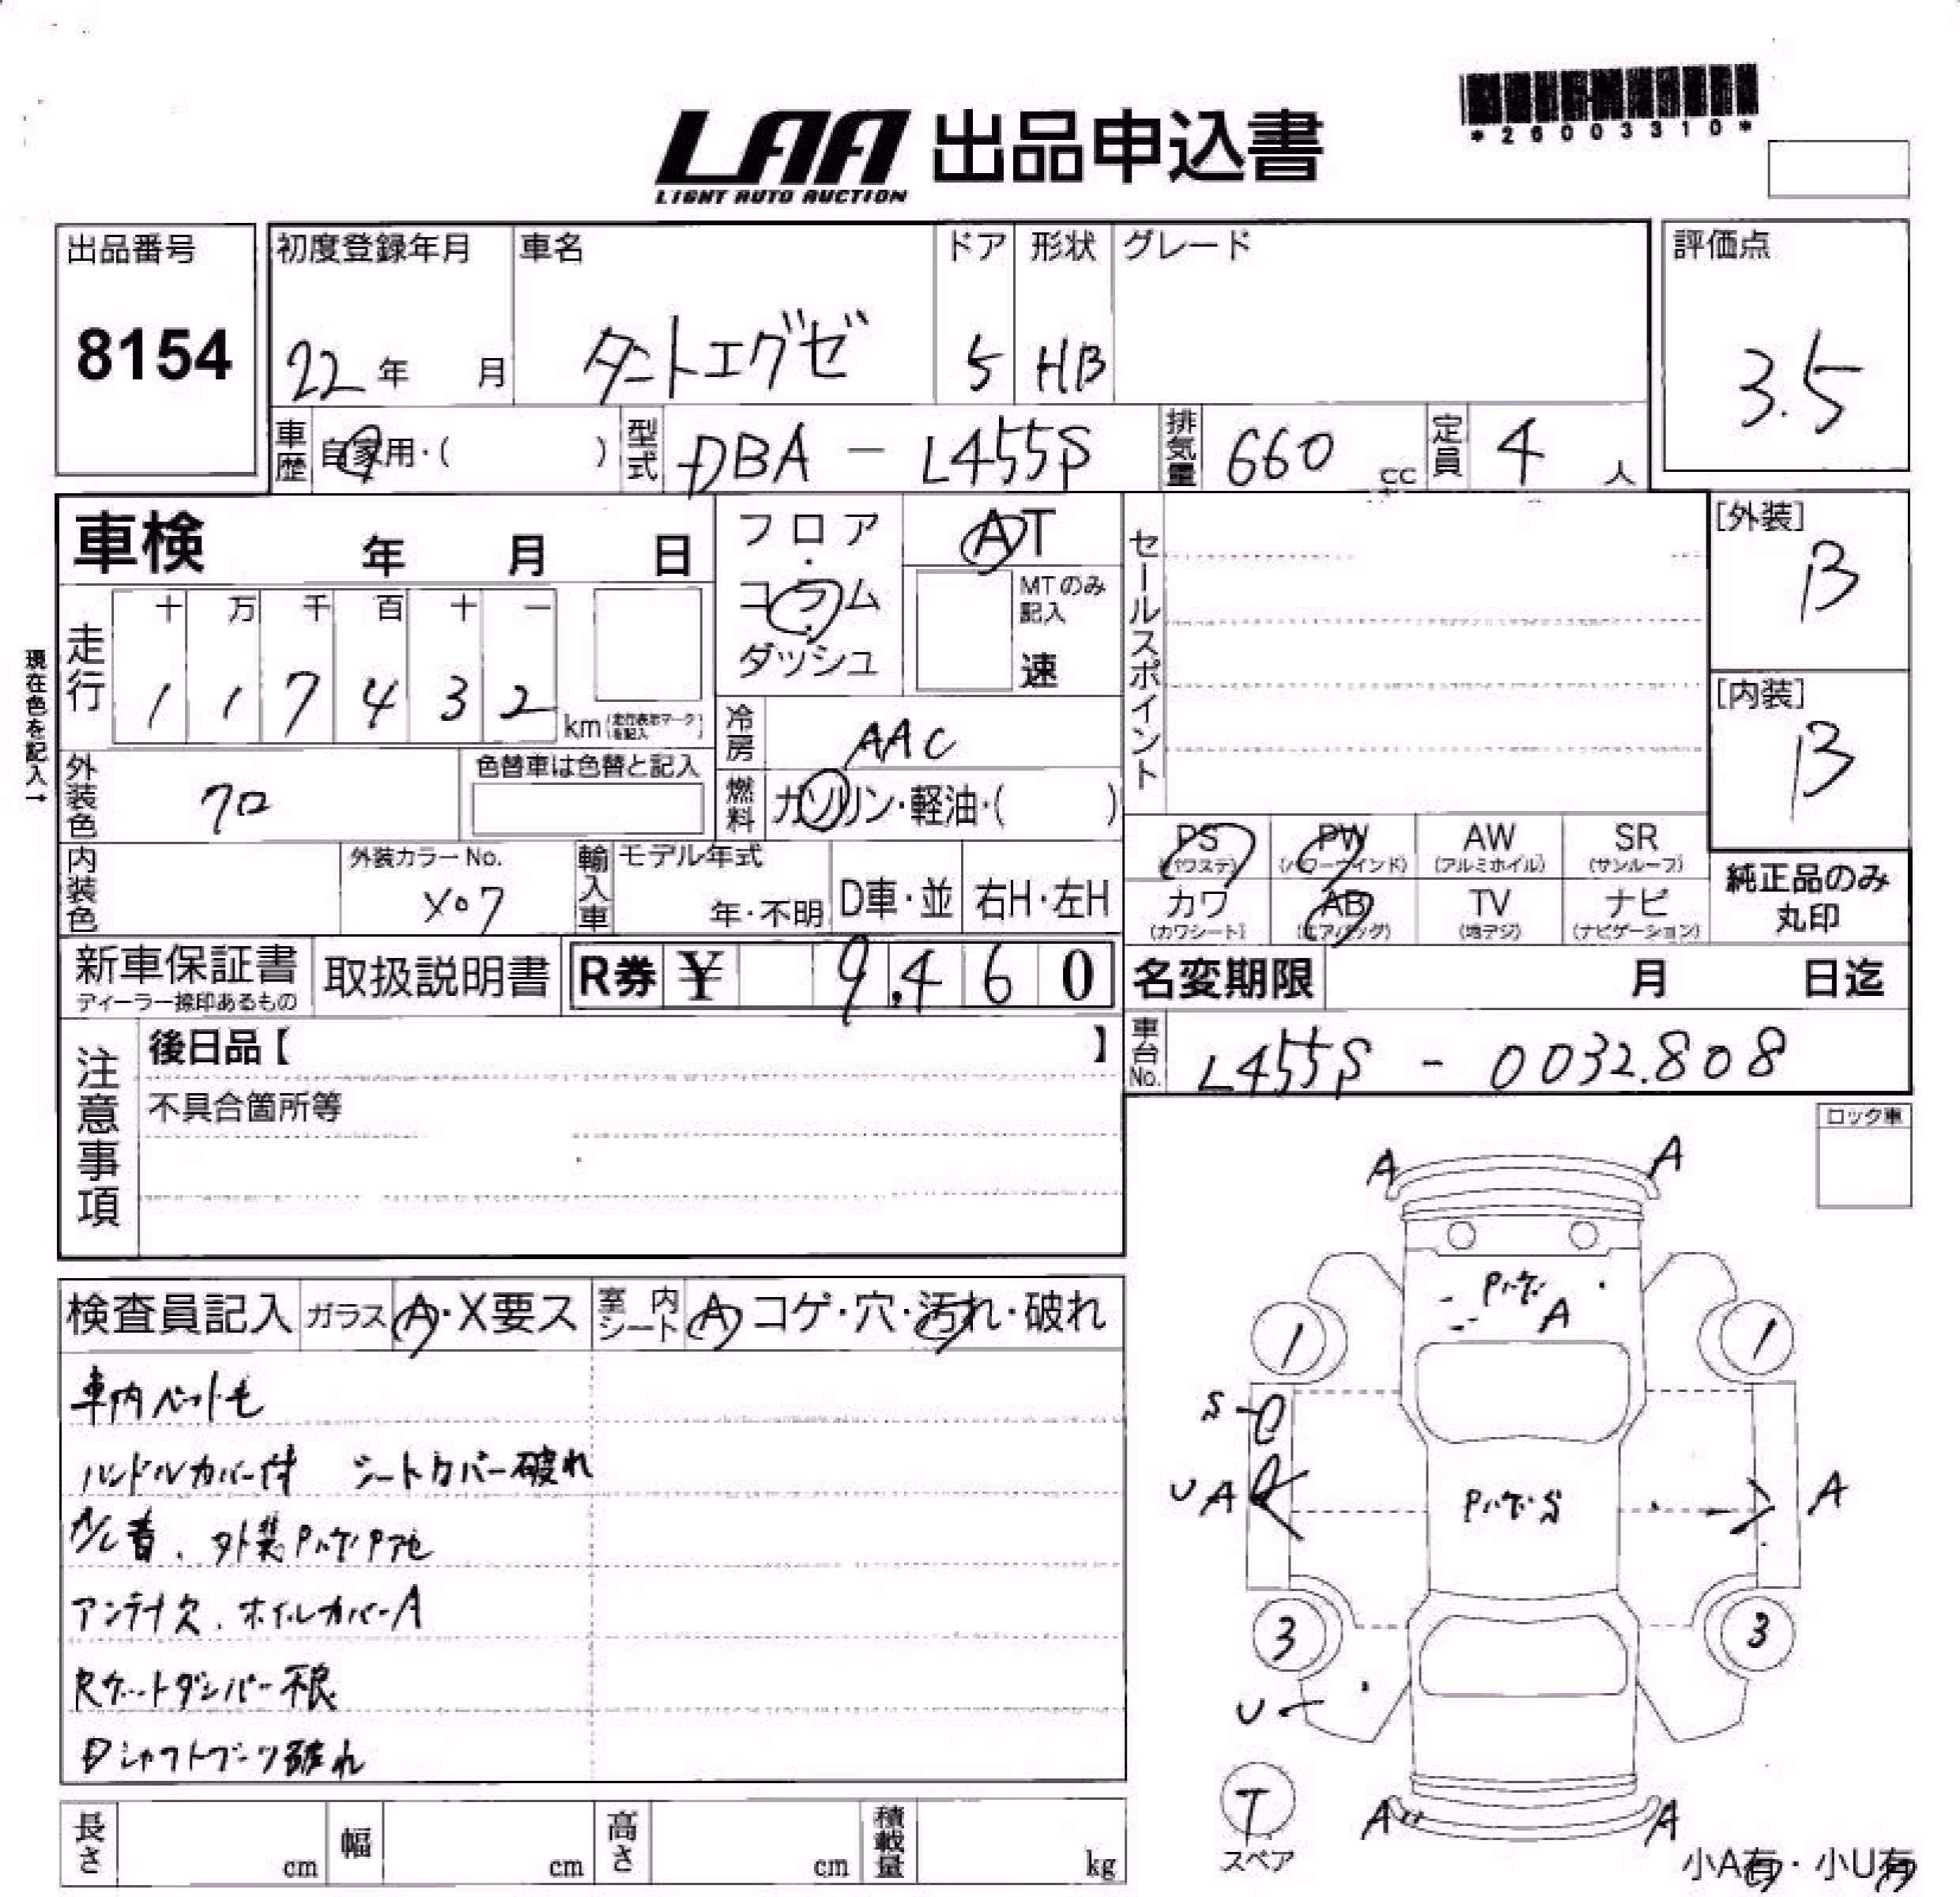 LAA 出品申込書
LIGHT AUTO AUCTION
*26003310*
出品番号
8154
初度登録年月
22年 月
車名
タントエグゼ
ドア
5
形状
HB
グレード
評価点
3.5
車歴 自家用・( )
型式 DBA - L455S
排気量 660 cc
定員 4 人
車検 年 月 日
フロア・コラム・ダッシュ
AT
MTのみ記入
速
セールスポイント
[外装]
B
[内装]
B
現在色を記入→
走行
十 万 千 百 十 一
1 1 7 4 3 2 km (走行表示マークを記入)
冷房 AAC
外装色 クロ
色替車は色替と記入
燃料 ガソリン・軽油・( )
内装色
外装カラーNo.
X07
輸入車
モデル年式
年・不明
D車・並
右H・左H
PS (パワステ)
PW (パワーウインド)
AW (アルミホイル)
SR (サンルーフ)
カワ (カワシート)
AB (エアバッグ)
TV (地デジ)
ナビ (ナビゲーション)
純正品のみ丸印
新車保証書
ディーラー捺印あるもの
取扱説明書
R券 ¥ 9,460
名変期限 月 日迄
注意事項
後日品【 】
不具合箇所等
車台No. L455S - 0032808
ロック車
検査員記入
ガラス A・X要ス
室内シート A コゲ・穴・汚れ・破れ
車内ペット毛
ハンドルカバー付 シートカバー破れ
外装 アセ
アンテナ欠、ホイルカバーA
Rゲートダンパー不良
Dシャフトブーツ破れ
A A
A
1 1
S
U A
S
A
3 3
U
T
スペア
A A
小A有・小U有
長さ cm
幅 cm
高さ cm
積載量 kg